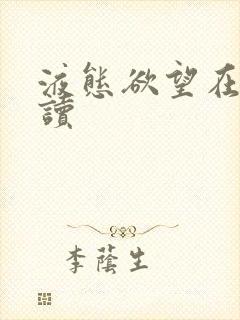 液態欲望在
讀
李蔭生